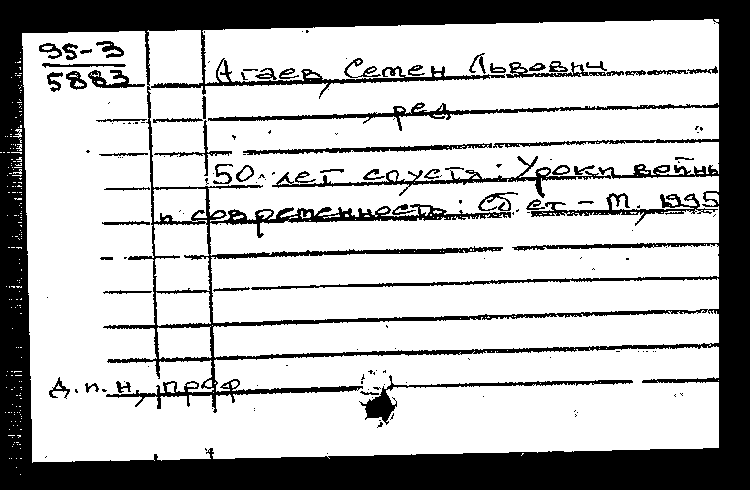 95-3
5883
Агаев, Семен Львович
, ред
50 лет спустя: Уроки войны
и современность: Сб. ст - М., 1995
д.п.н., проф